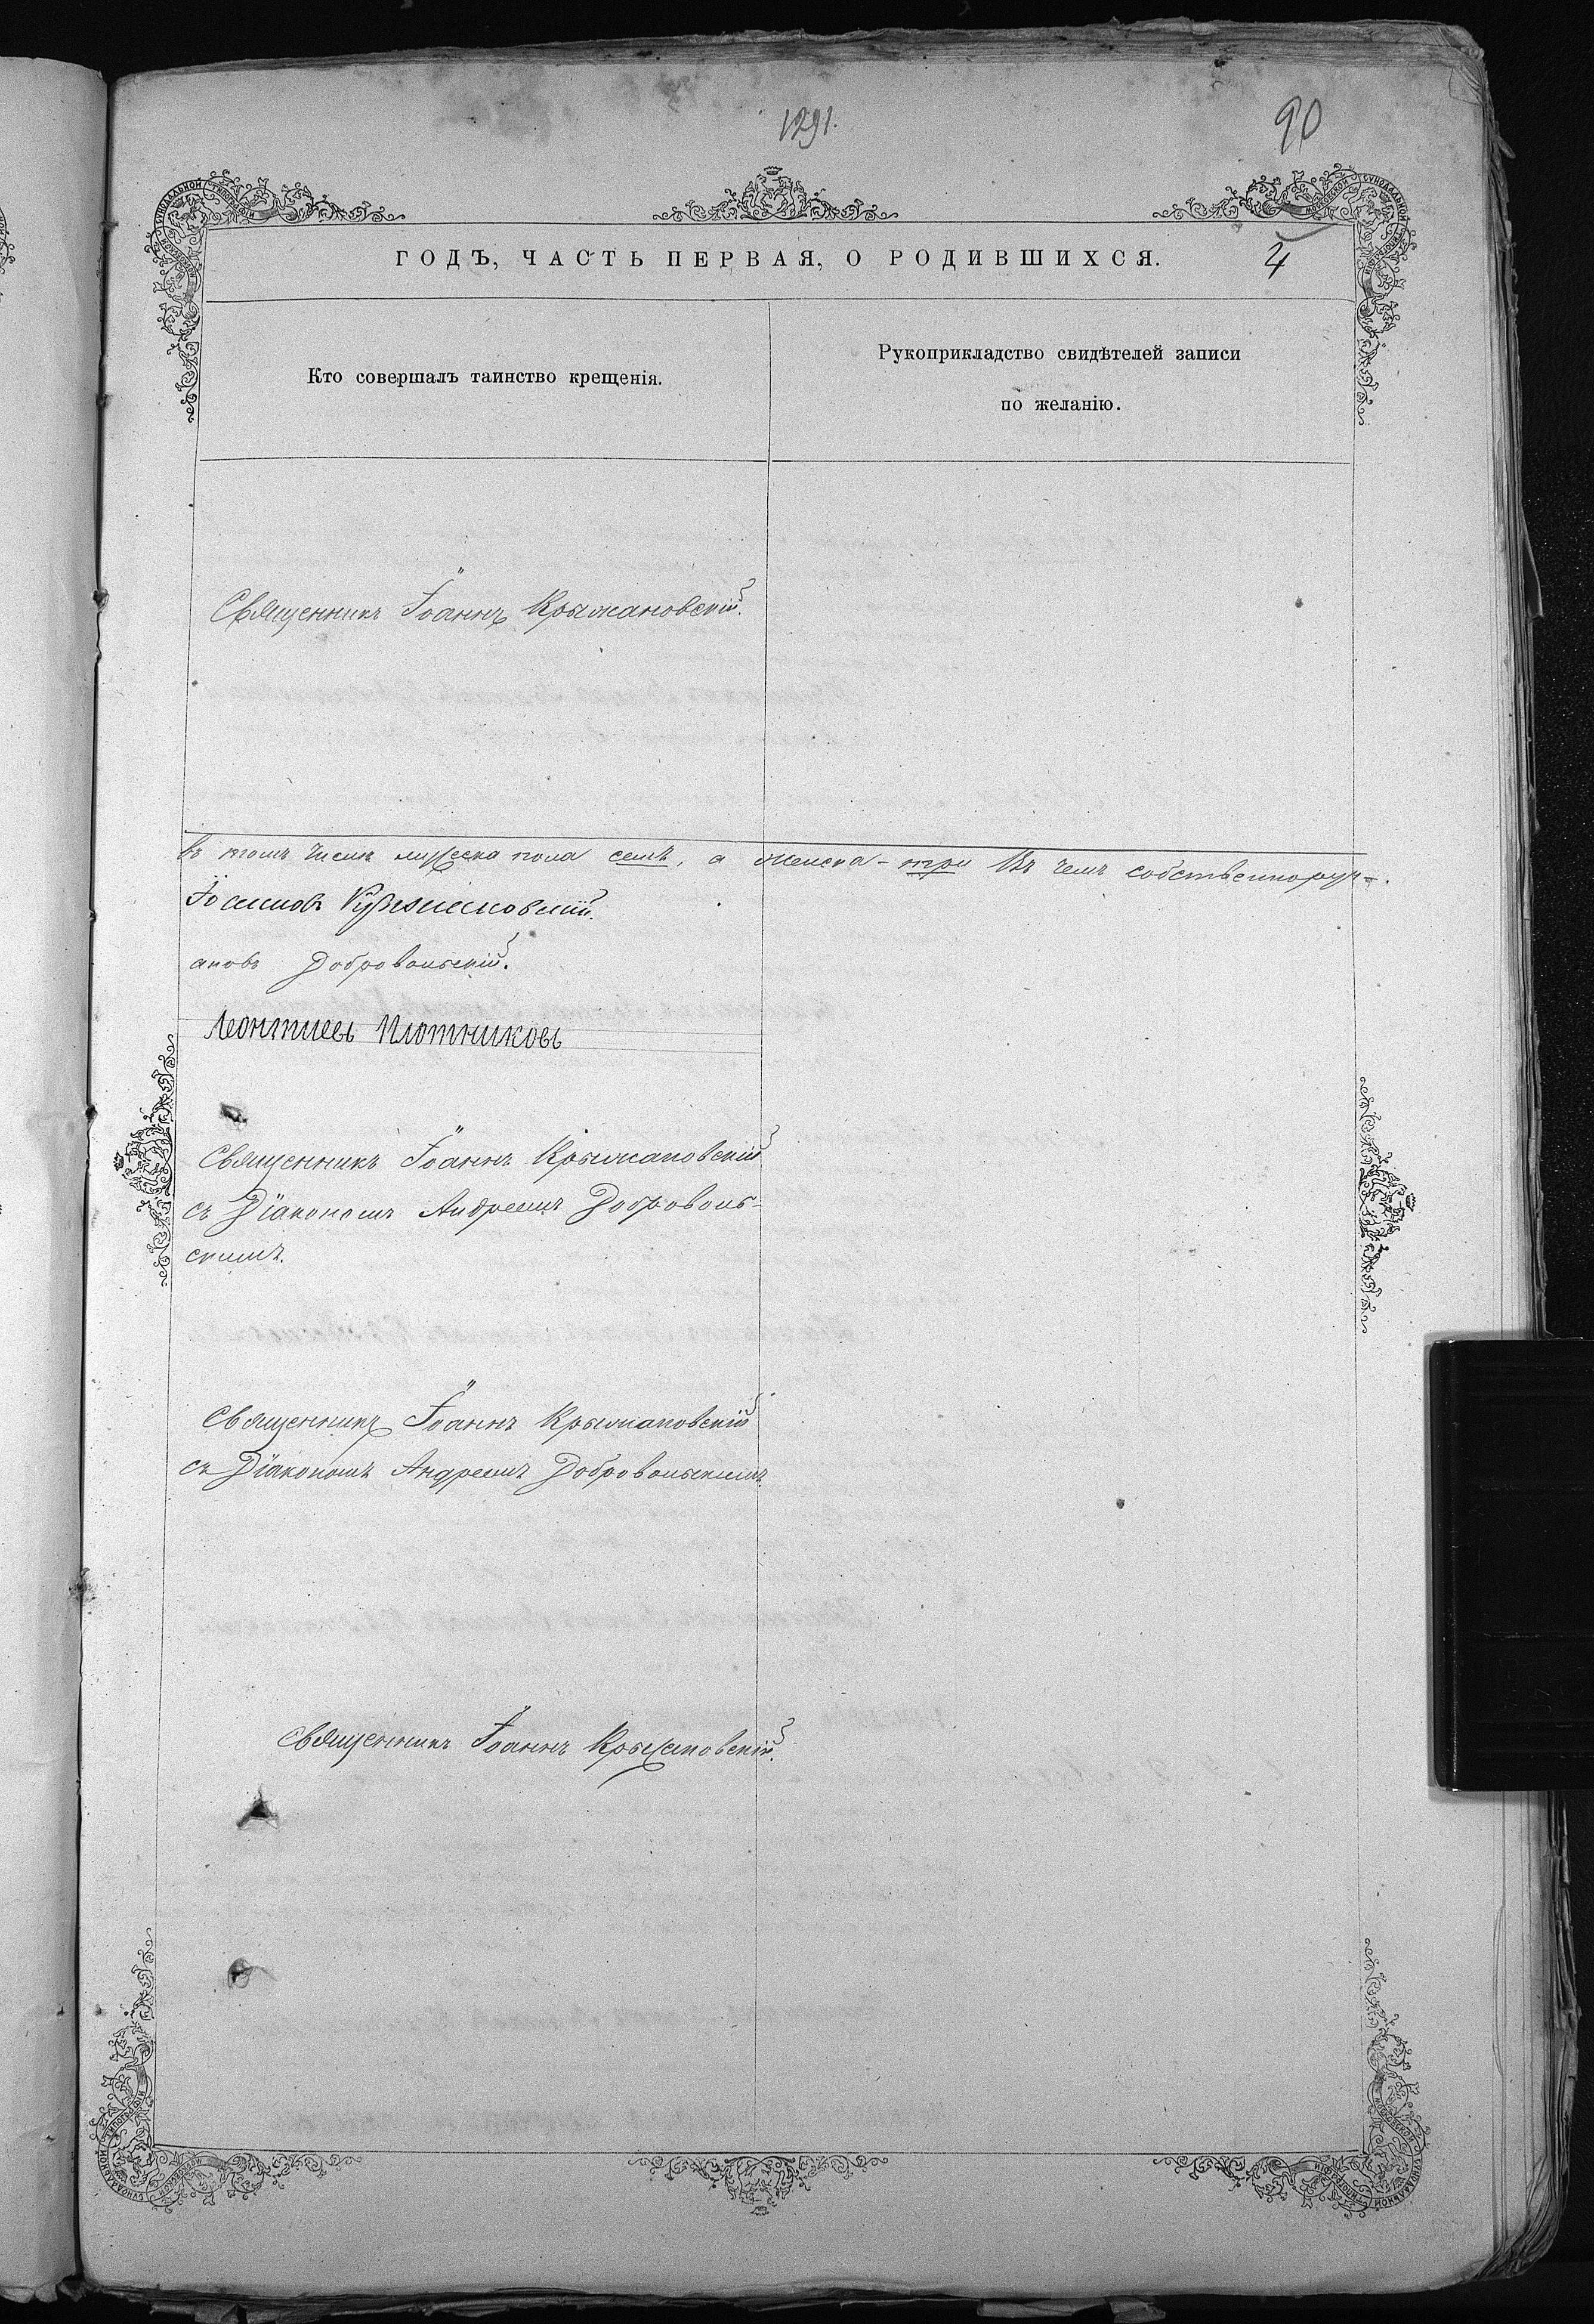 1291.
90
ГОДЪ, ЧАСТЬ ПЕРВАЯ, О РОДИВШИХСЯ.
4
Кто совершалъ таинство крещенія.
Рукоприкладство свидѣтелей записи
по желанію.
Священникъ Іоаннъ Крыжановскій.
Въ томъ числѣ мужеска пола семь, а женска - три Въ чемъ собственнорук-
Іоанновъ Крыжановскій.
аковъ Добровольскій.
Леонтиевъ Плотниковъ
Священникъ Іоаннъ Крыжановскій
съ Діакономъ Андреемъ Доброволь-
скимъ.
Священникъ Іоаннъ Крыжановскій
съ Діакономъ Андреемъ Добровольскимъ
Священникъ Іоаннъ Крыжановскій.